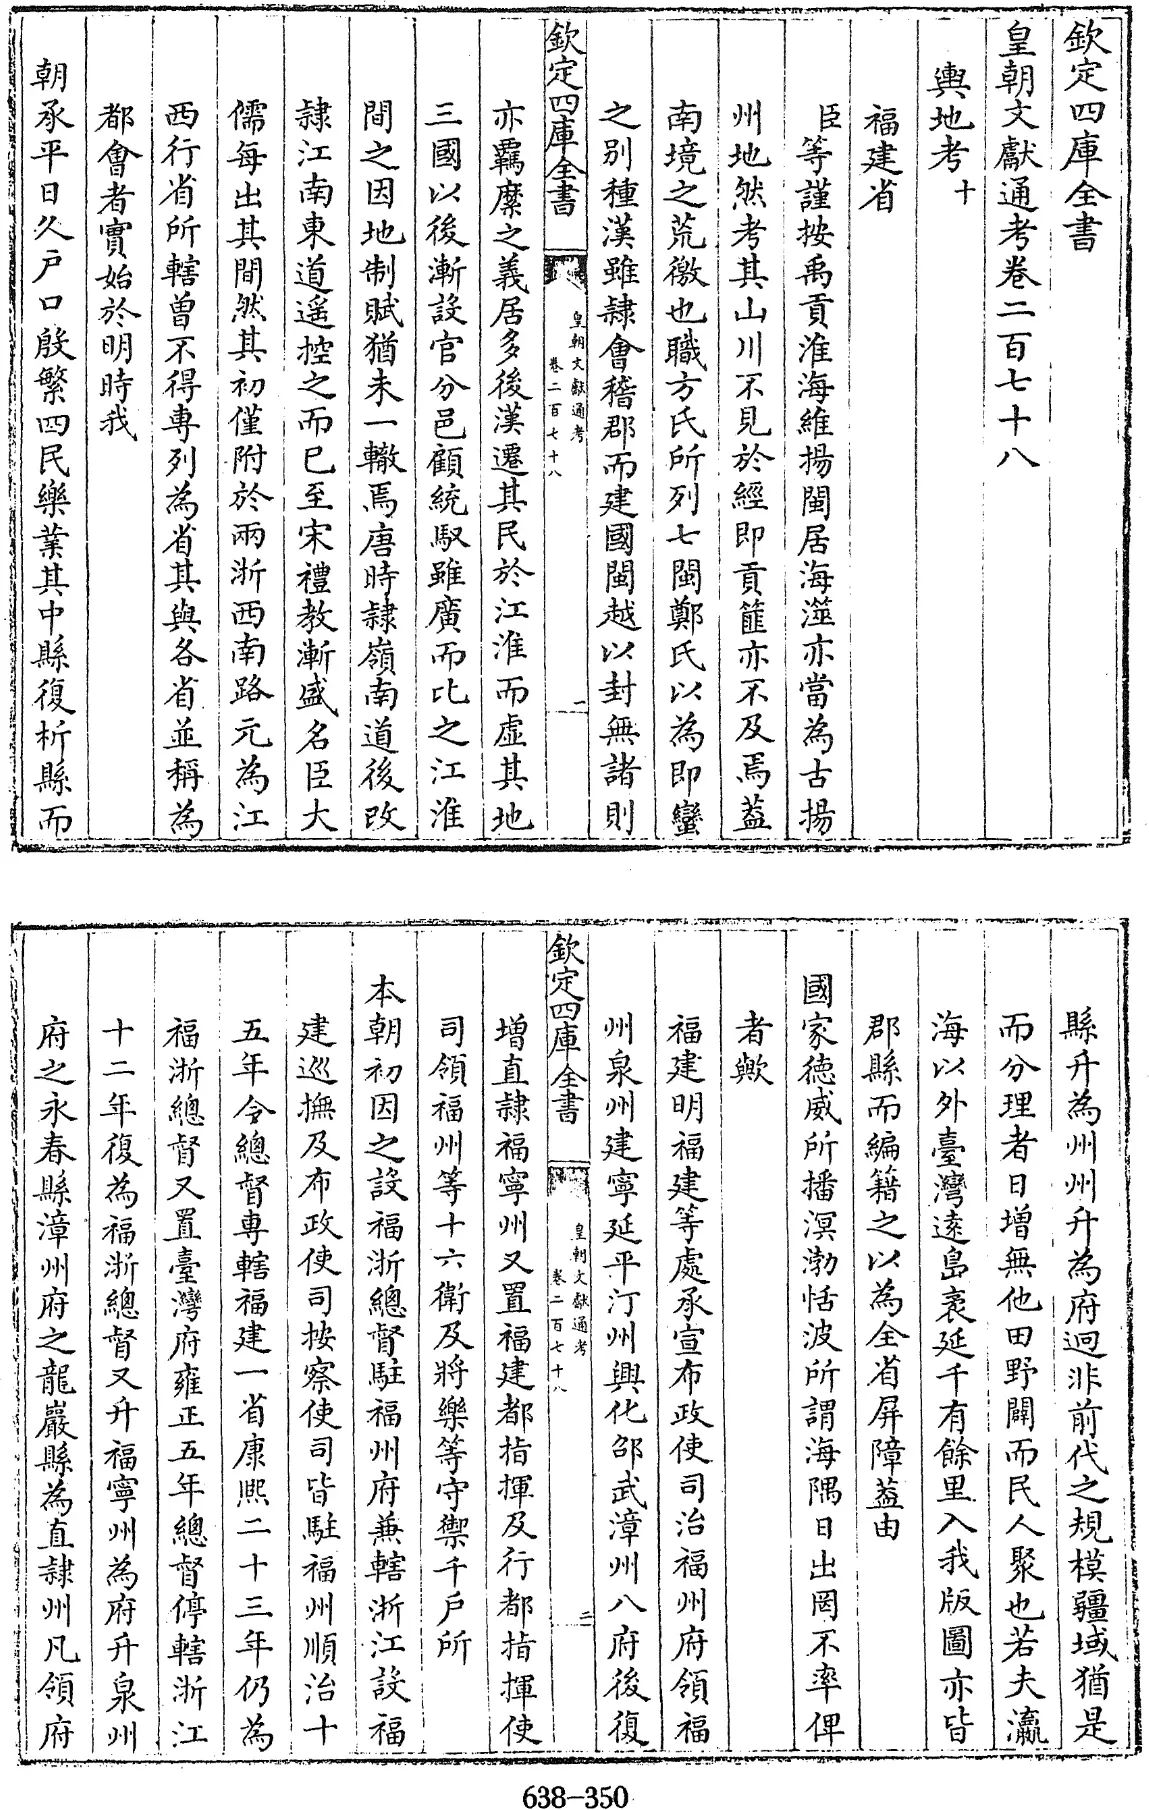 欽定四庫全書
皇朝文獻通考卷二百七十八
輿地考十
福建省
臣等謹按禹貢淮海維揚閩居海澨亦當為古揚
州地然考其山川不見於經即貢篚亦不及焉蓋
南境之荒徼也職方氏所列七閩鄭氏以為即蠻
之别種漢雖隸會稽郡而建國閩越以封無諸則
欽定四庫全書
皇朝文獻通考
卷二百七十八
一
亦覊縻之義居多後漢遷其民於江淮而虛其地
三國以後漸設官分邑顧統馭雖廣而比之江淮
間之因地制賦猶未一轍焉唐時隸嶺南道後改
隸江南東道遥控之而已至宋禮教漸盛名臣大
儒每出其間然其初僅附於兩浙西南路元為江
西行省所轄曾不得專列為省其與各省並稱為
都會者實始於明時我
朝承平日久户口殷繁四民樂業其中縣復析縣而
縣升為州州升為府迥非前代之規模疆域猶是
而分理者日增無他田野闢而民人聚也若夫瀛
海以外臺灣逺島袤延千有餘里入我版圖亦皆
郡縣而編籍之以為全省屏障蓋由
國家德威所播溟渤恬波所謂海隅日出罔不率俾
者歟
福建明福建等處承宣布政使司治福州府領福
州泉州建寧延平汀州興化邵武漳州八府後復
欽定四庫全書
皇朝文獻通考
卷二百七十八
二
增直隸福寧州又置福建都指揮及行都指揮使
司領福州等十六衛及將樂等守禦千戶所
本朝初因之設福浙總督駐福州府兼轄浙江設福
建巡撫及布政使司按察使司皆駐福州順治十
五年令總督專轄福建一省康熙二十三年仍為
福浙總督又置臺灣府雍正五年總督停轄浙江
十二年復為福浙總督又升福寧州為府升泉州
府之永春縣漳州府之龍巖縣為直隸州凡領府
638-350